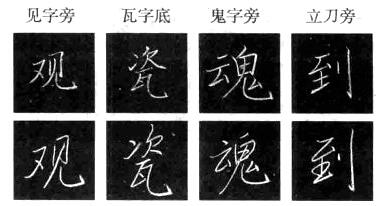 见字旁 瓦字底 鬼字旁 立刀旁
观 瓷 魂 到
观 瓷 魂 到